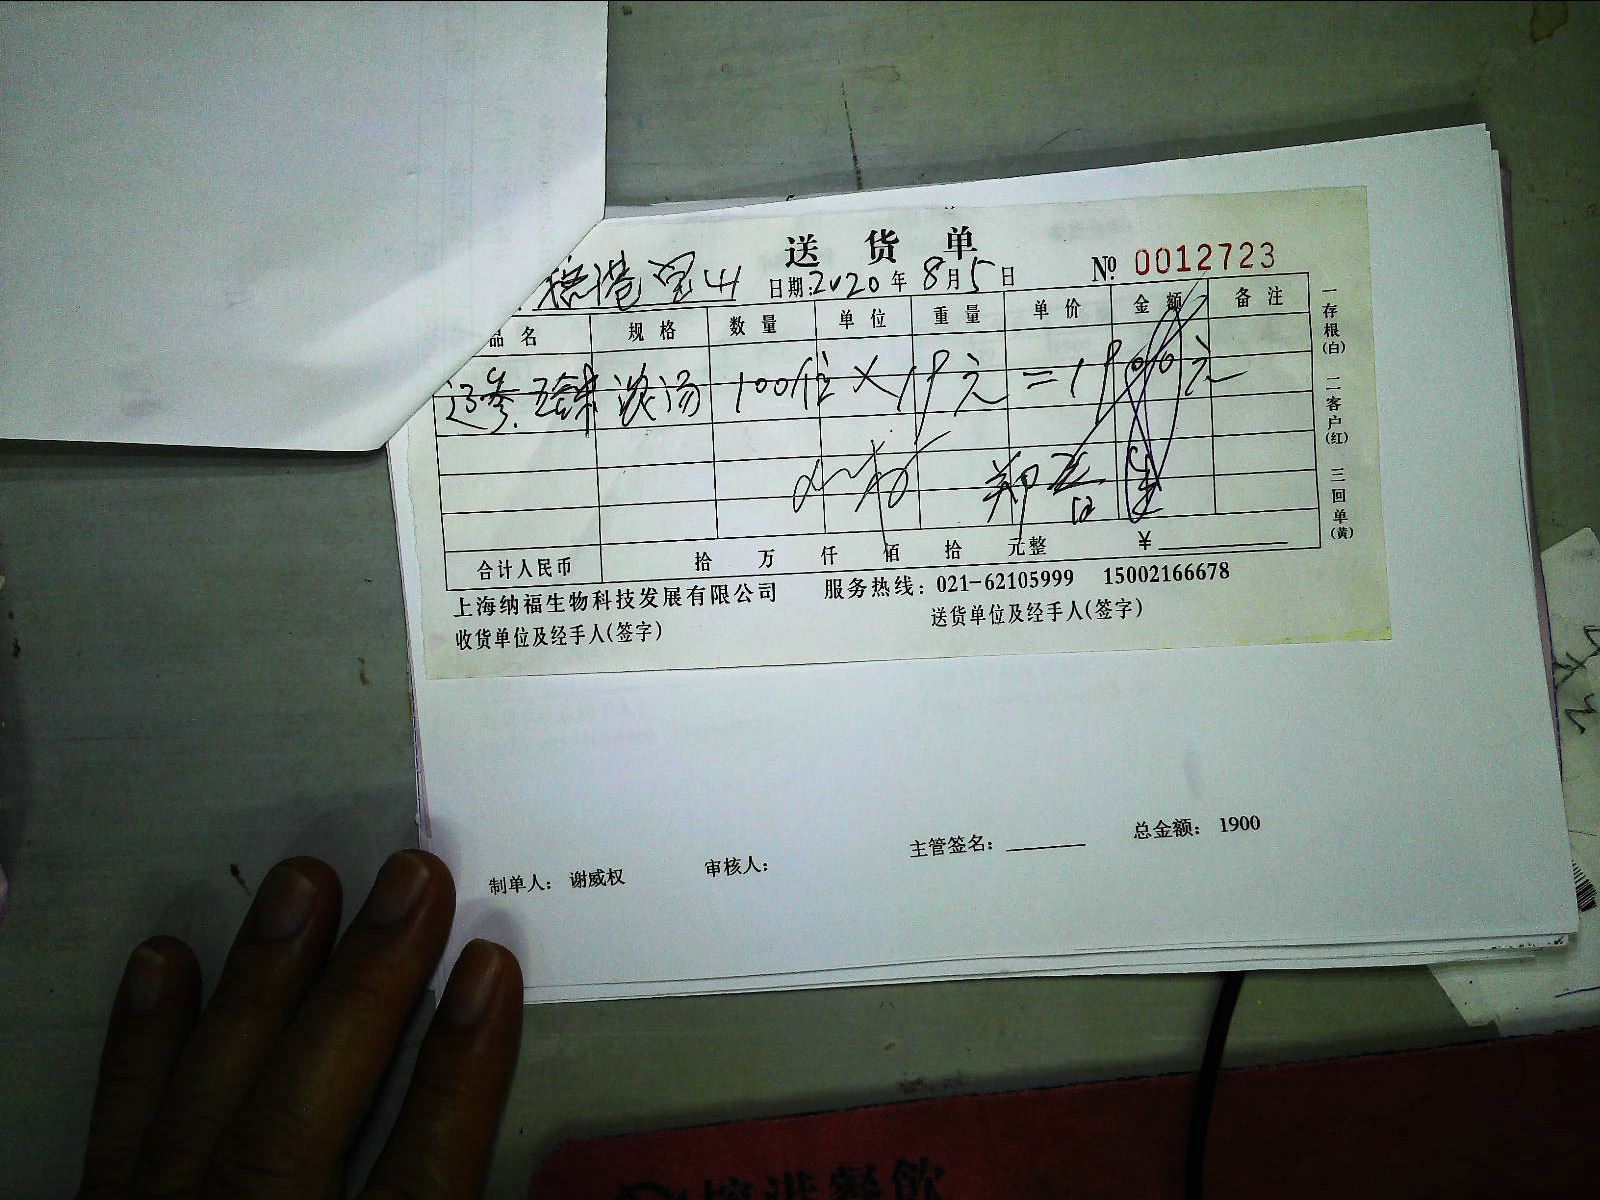 送货单
港宝山 日期:2020年8月5日 № 0012723
品名 规格 数量 单位 重量 单价 金额 备注
辽参. 浓汤 100位×19元=1900元
合计人民币 拾 万 仟 佰 拾 元整 ¥
上海纳福生物科技发展有限公司 服务热线: 021-62105999 15002166678
收货单位及经手人(签字) 送货单位及经手人(签字)
一存根(白) 二客户(红) 三回单(黄)
制单人: 谢威权 审核人: 主管签名: 总金额: 1900
港餐飲